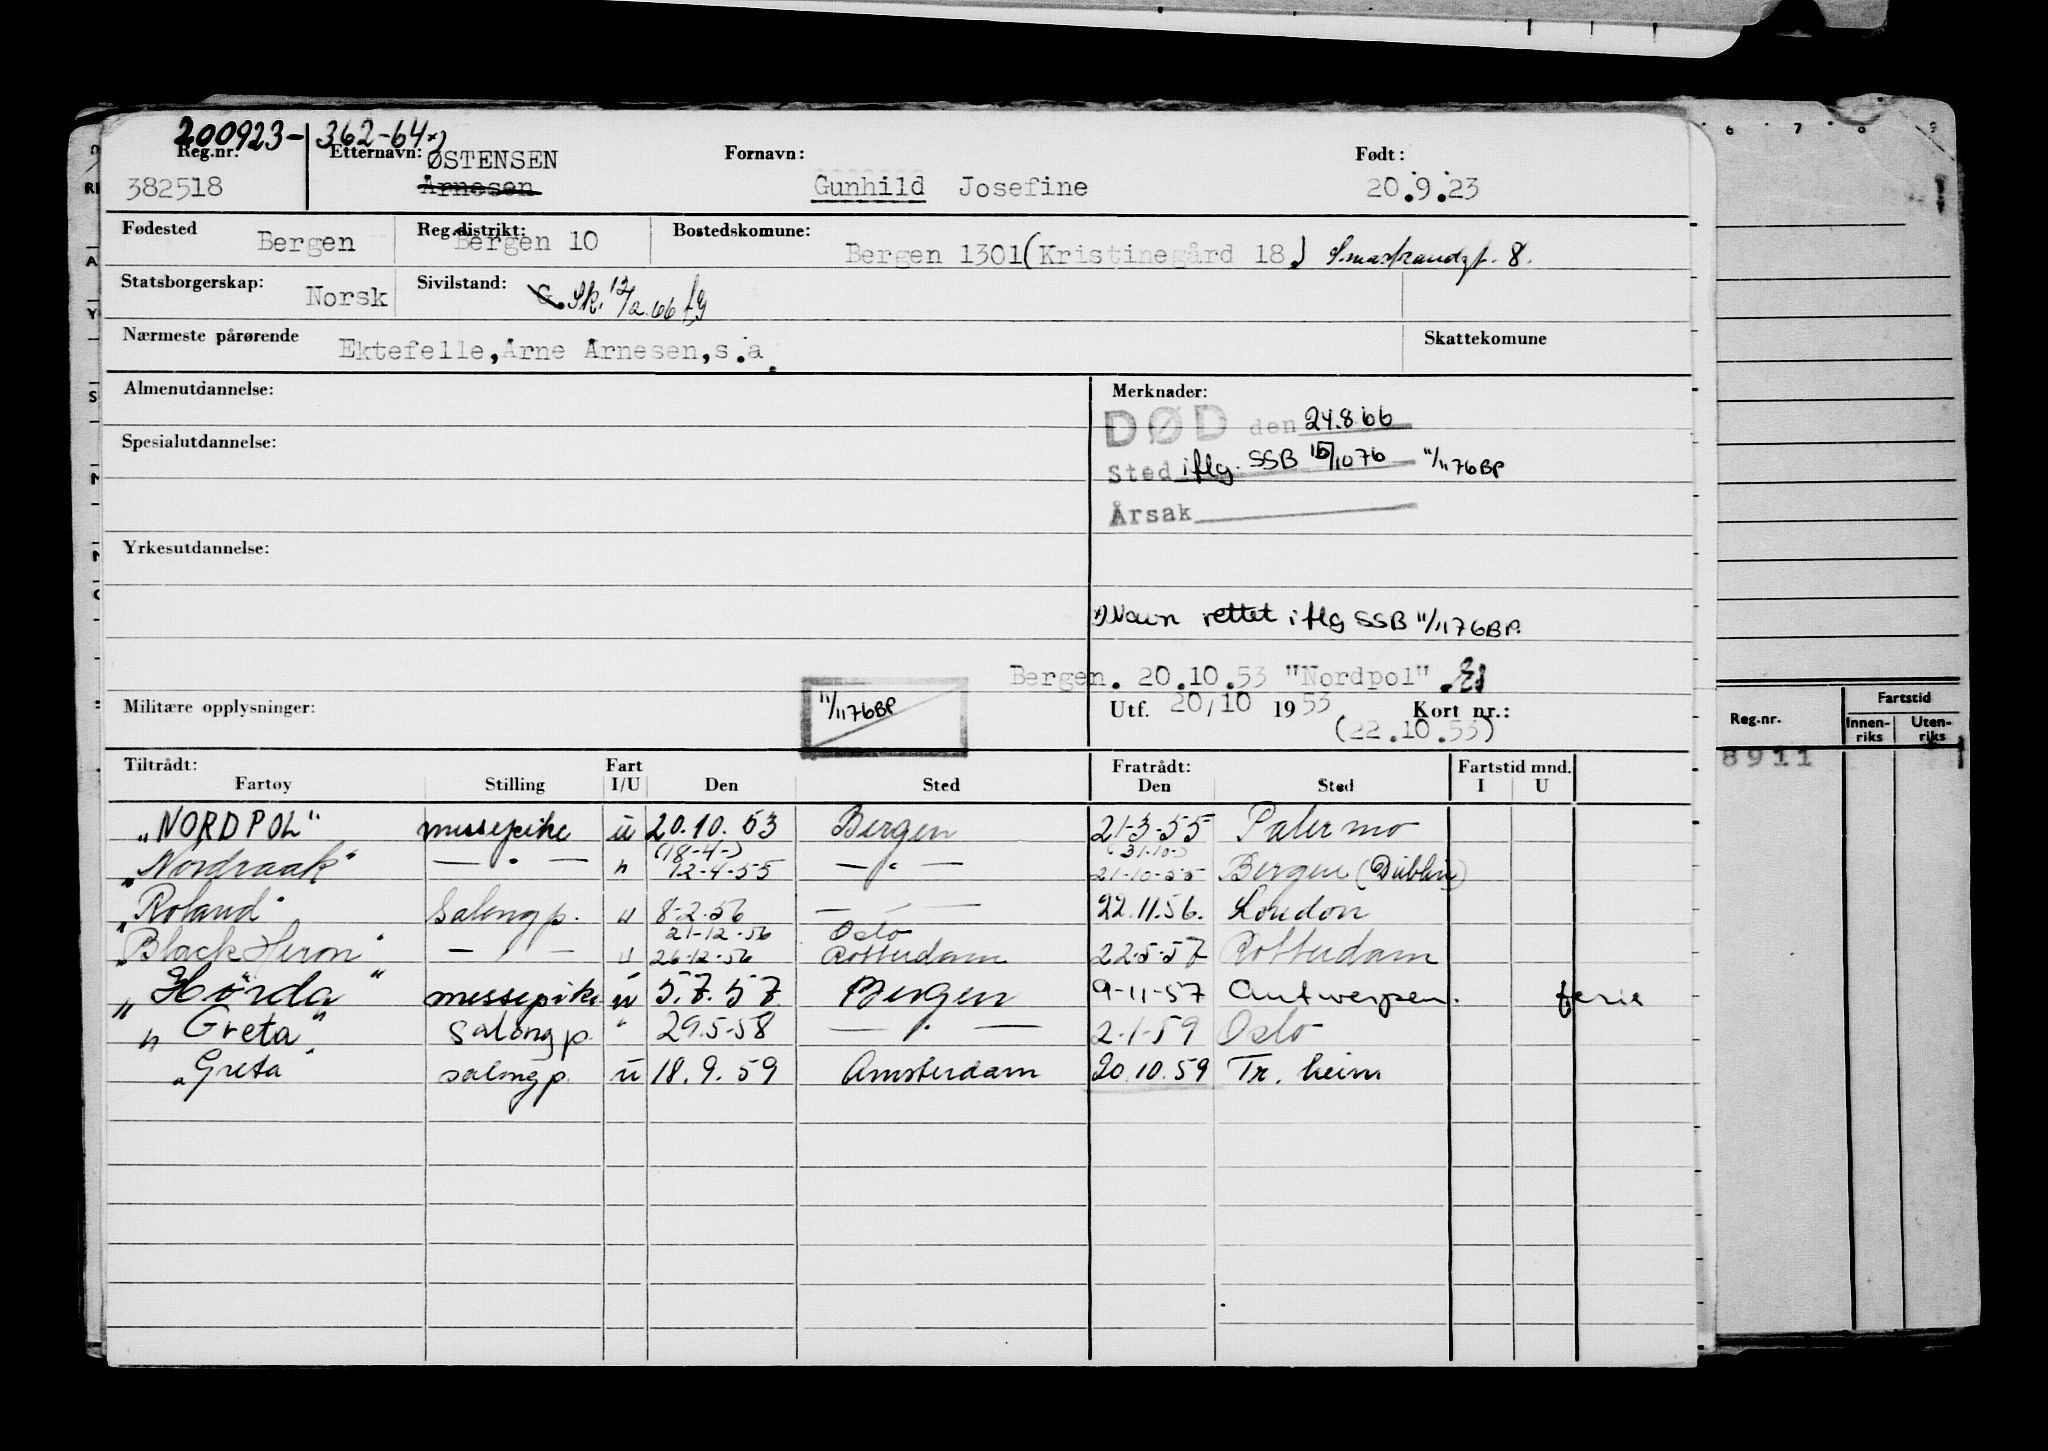 200923- 362-64 x)
Reg.nr. Etternavn: ØSTENSEN Fornavn: Født:
382518 Arnesen Gunhild Josefine 20.9.23
Fødested Bergen Reg.distrikt: Bergen 10 Bostedskomune: Bergen 1301 (Kristinegård 18) Småstrandgt. 8.
Statsborgerskap: Norsk Sivilstand: G. Sk. 12/2.66 fg
Nærmeste pårørende Ektefelle, Arne Arnesen, s.a. Skattekomune
Almenutdannelse: Merknader:
DØD den 24.8.66
Spesialutdannelse:
Sted iflg. SSB 15/10 76 11/11 76 BP
Årsak
Yrkesutdannelse:
x) Navn rettet iflg SSB 11/11 76 BP.
Bergen. 20.10.53 "Nordpol"
Militære opplysninger: 11/11 76 BP Utf. 20/10 1953 Kort nr.:
(22.10.53)
Tiltrådt: Fart Fratrådt: Fartstid mnd.
Fartøy Stilling I/U Den Sted Den Sted I U
"NORDPOL" messepike u 20.10.53 Bergen 21-3-55 Palermo
(18-4-) (31-10-)
"Nordraak" — " — " 12-4-55 — " — 21-10-55 Bergen (Dublin)
"Roland" Salongp. u 8-2-56 — " — 22.11.56. London
21-12-56 Oslo
"Black Heron" — " — u 26-12-56 Rotterdam 22-5-57 Rotterdam
"Hörda" messepike u 5.7.57 Bergen 9-11-57 Antwerpen. ferie
"Greta" Salongp. " 29.5-58 — " — 2-1-59 Oslo
"Greta" salongp. u 18.9.59 Amsterdam 20.10.59 Tr.heim
6 7 8 9
Reg.nr. Fartstid
Innenriks Utenriks
8911